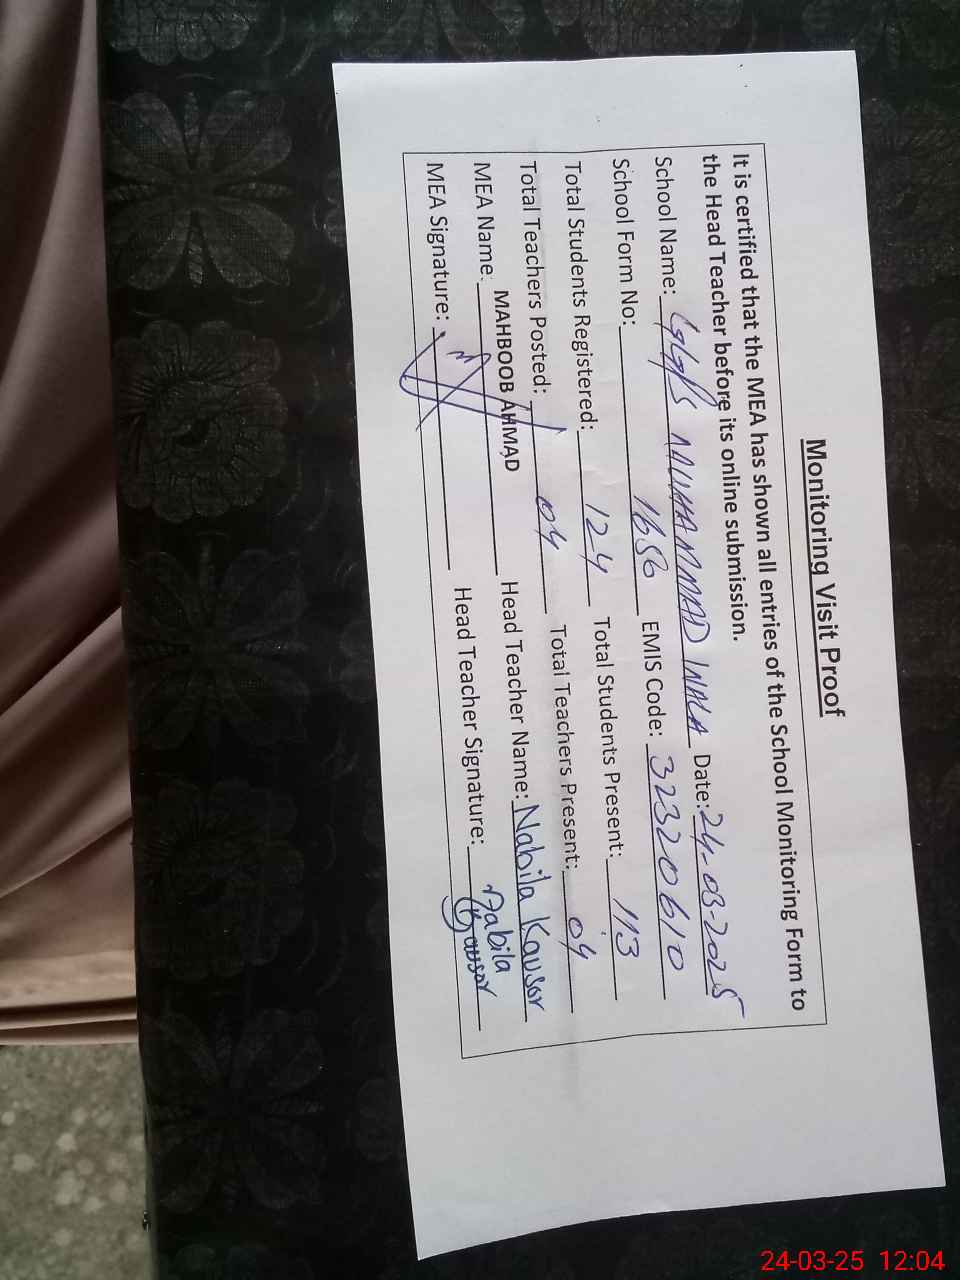 Monitoring Visit Proof
It is certified that the MEA has shown all entries of the School Monitoring Form to
the Head Teacher before its online submission.
School Name: GGPS MUHAMMAD WALA Date: 24-03-2025
School Form No: 1656 EMIS Code: 32320610
Total Students Registered: 124 Total Students Present: 113
Total Teachers Posted: 04 Total Teachers Present: 04
MEA Name: MAHBOOB AHMAD Head Teacher Name: Nabila Kausor
MEA Signature: Head Teacher Signature: Nabila Kausor
24-03-25 12:04